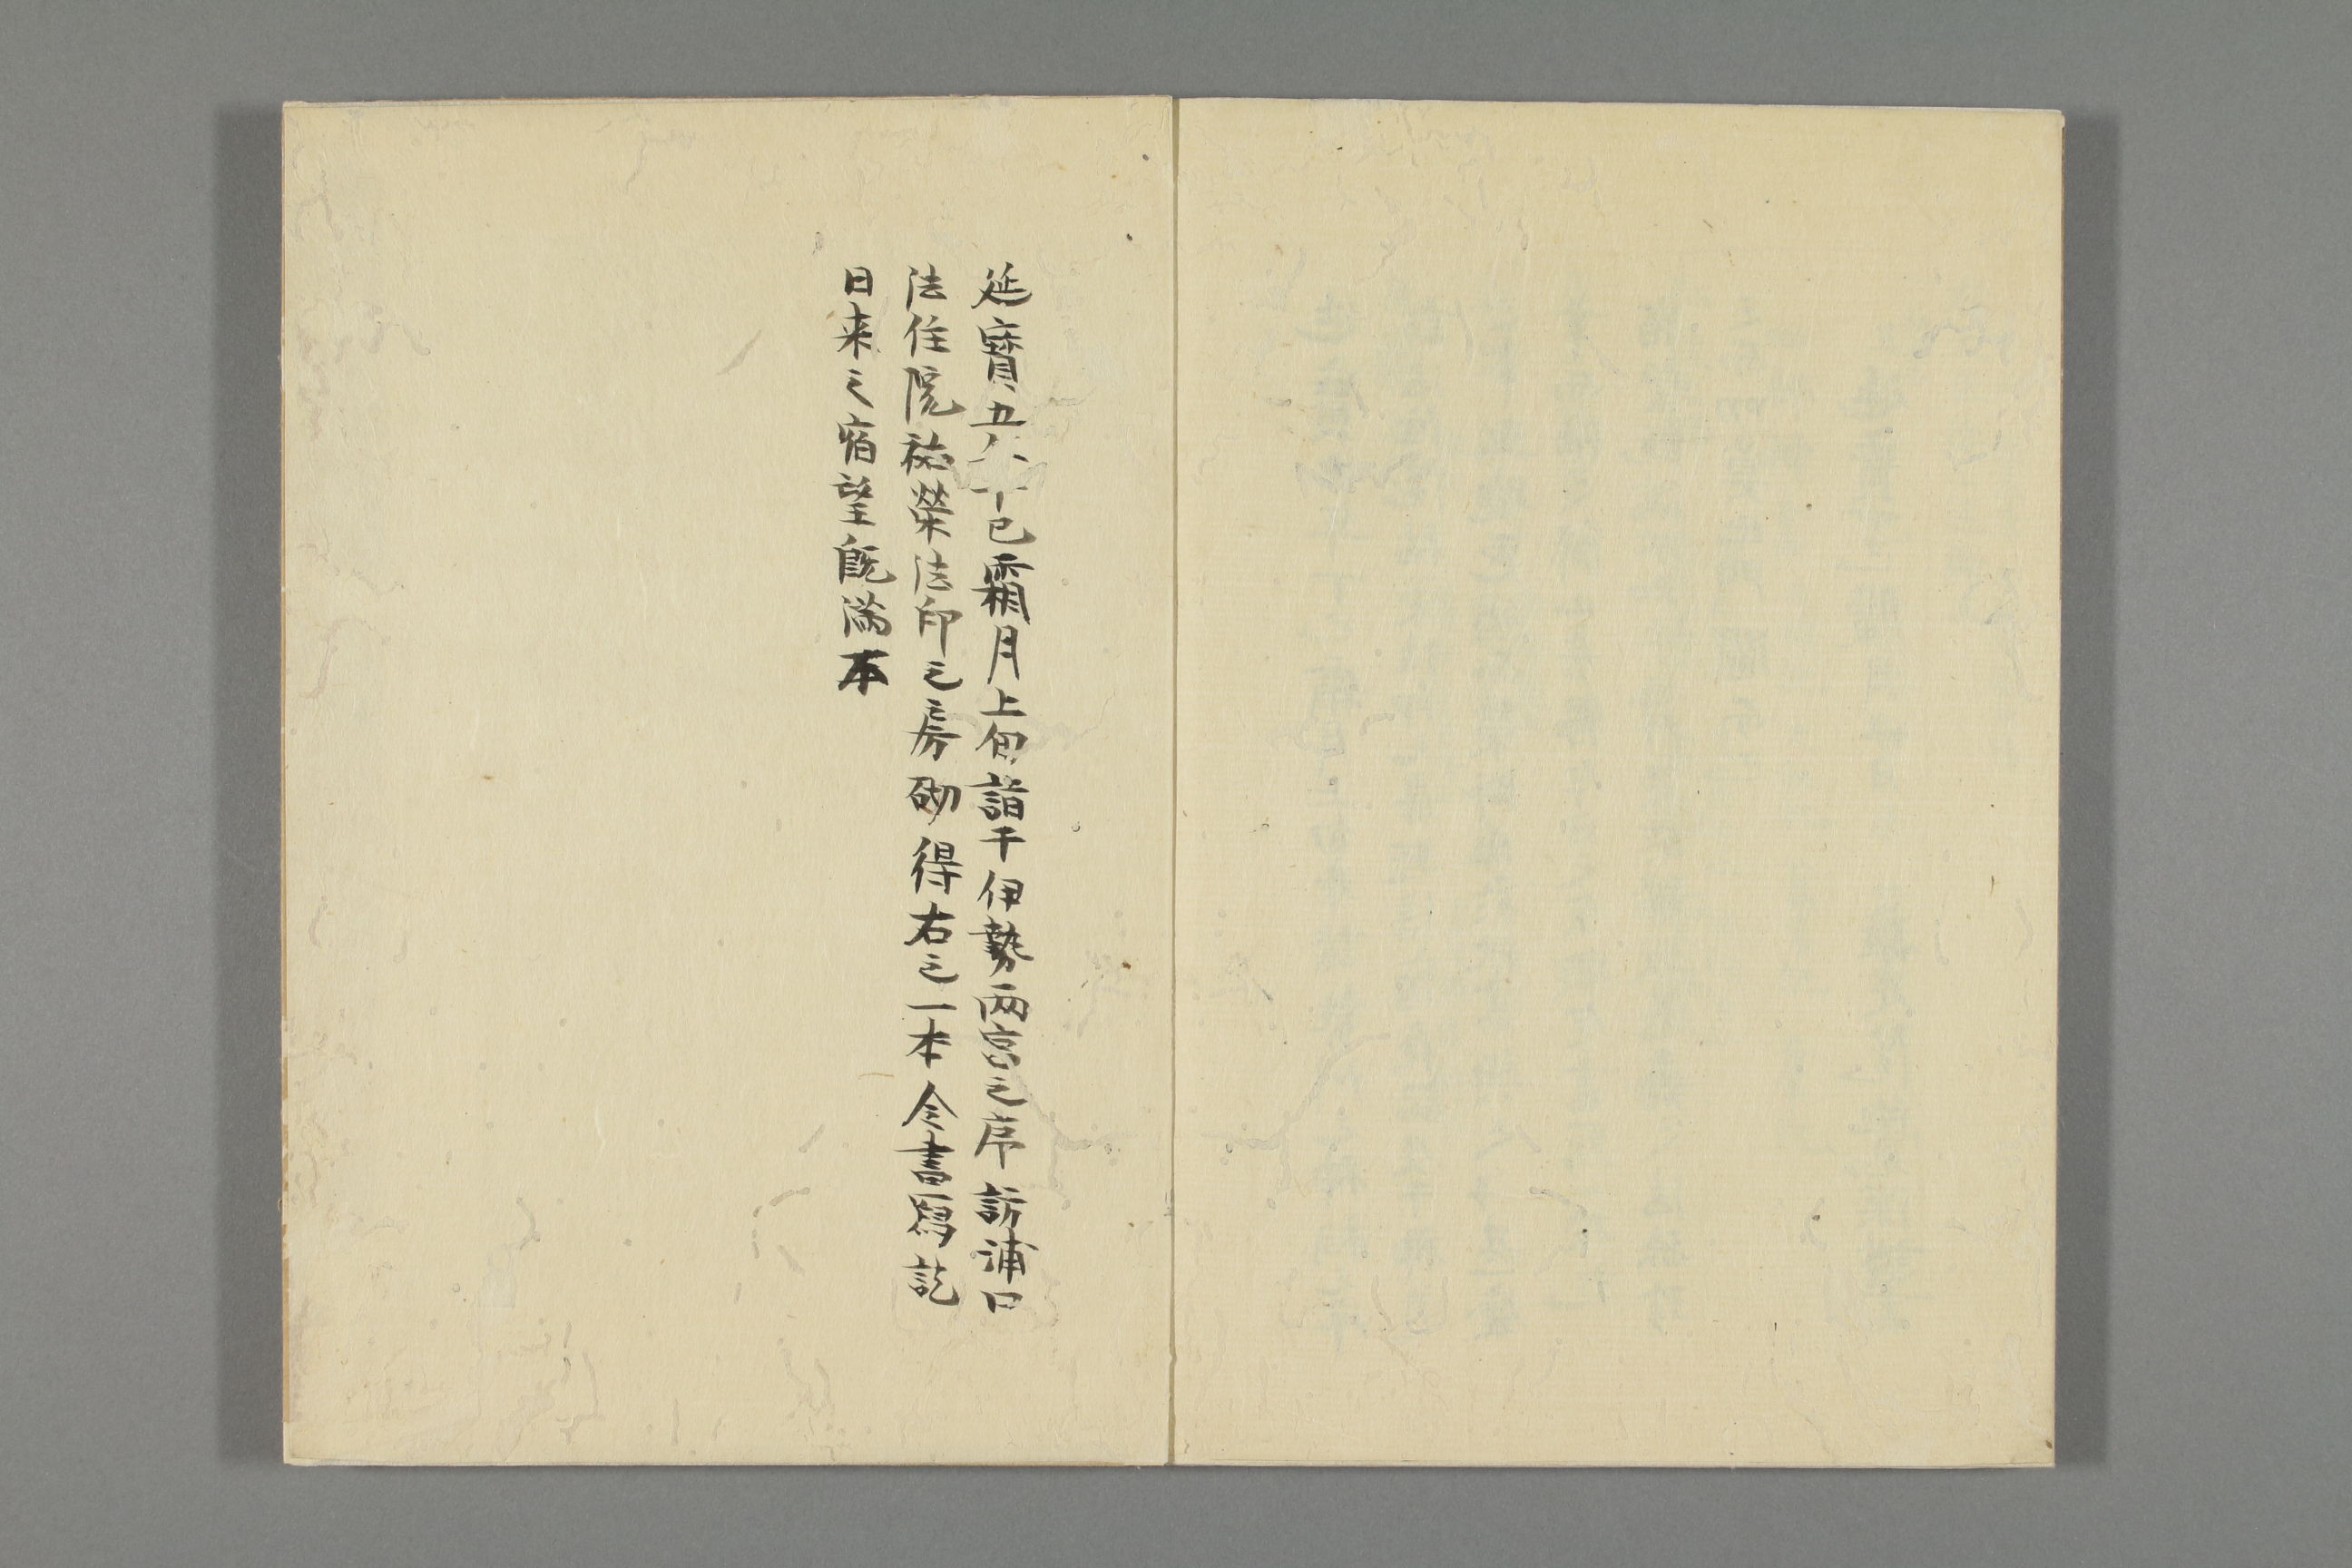 延寶五年丁巳霜月上旬詣于伊勢兩宮之序訪浦口
法住院祐榮法印之房砌得右之一本令書寫訖
日来之宿望既滿本